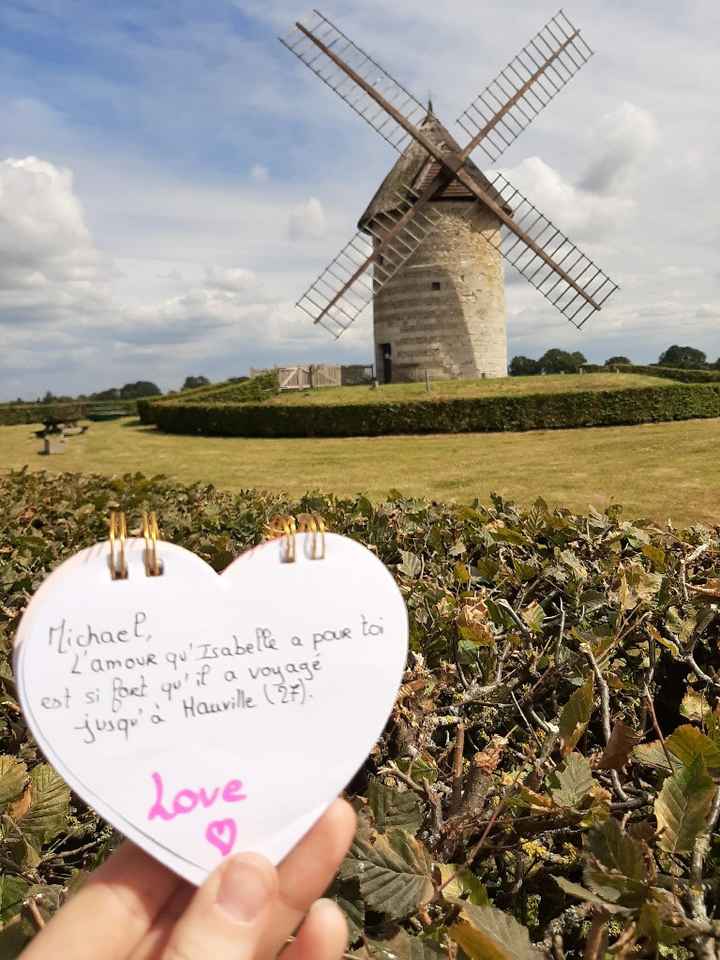 Michael,
L'amour qu'Isabelle a pour toi
est si fort qu'il a voyagé
jusqu'à Hauville (27).
Love